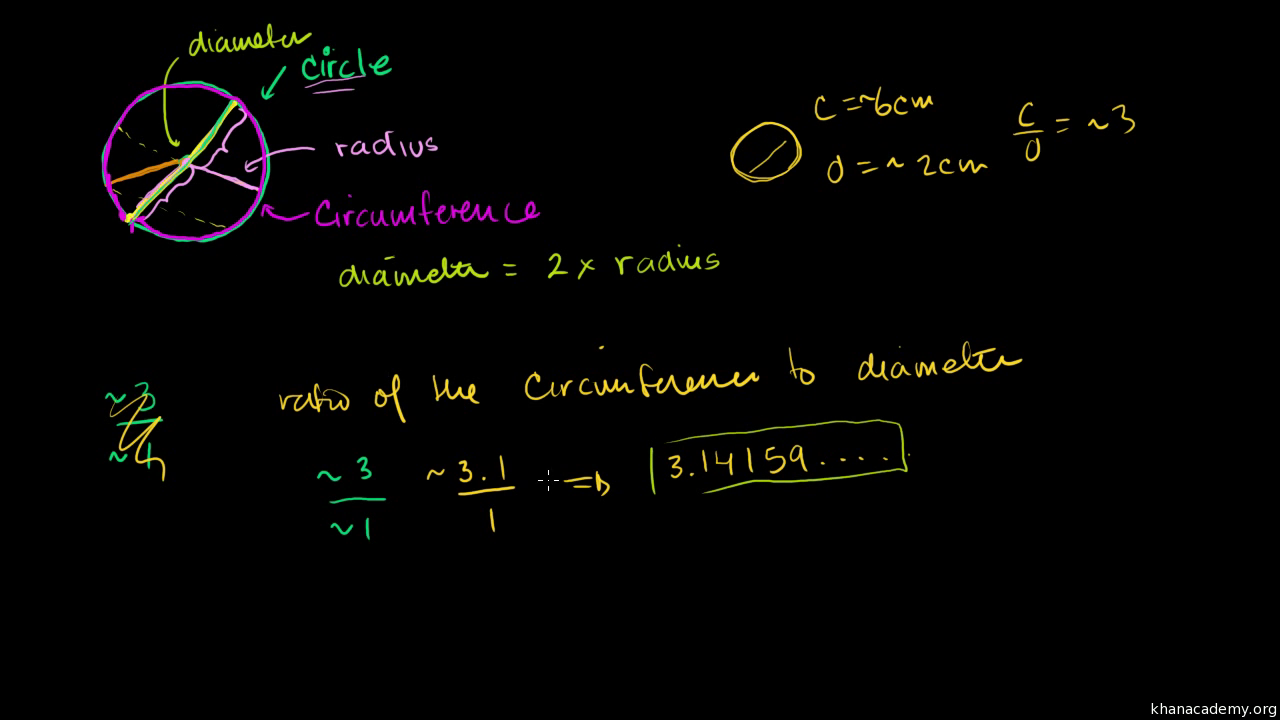 diameter
circle
radius
circumference
diameter = 2 x radius
c = ~6cm
d = ~ 2cm
c/d = ~3
ratio of the circumference to diameter
~3
~1
~ 3
~ 1
~ 3.1
1
⇒ 3.14159....
khanacademy.org